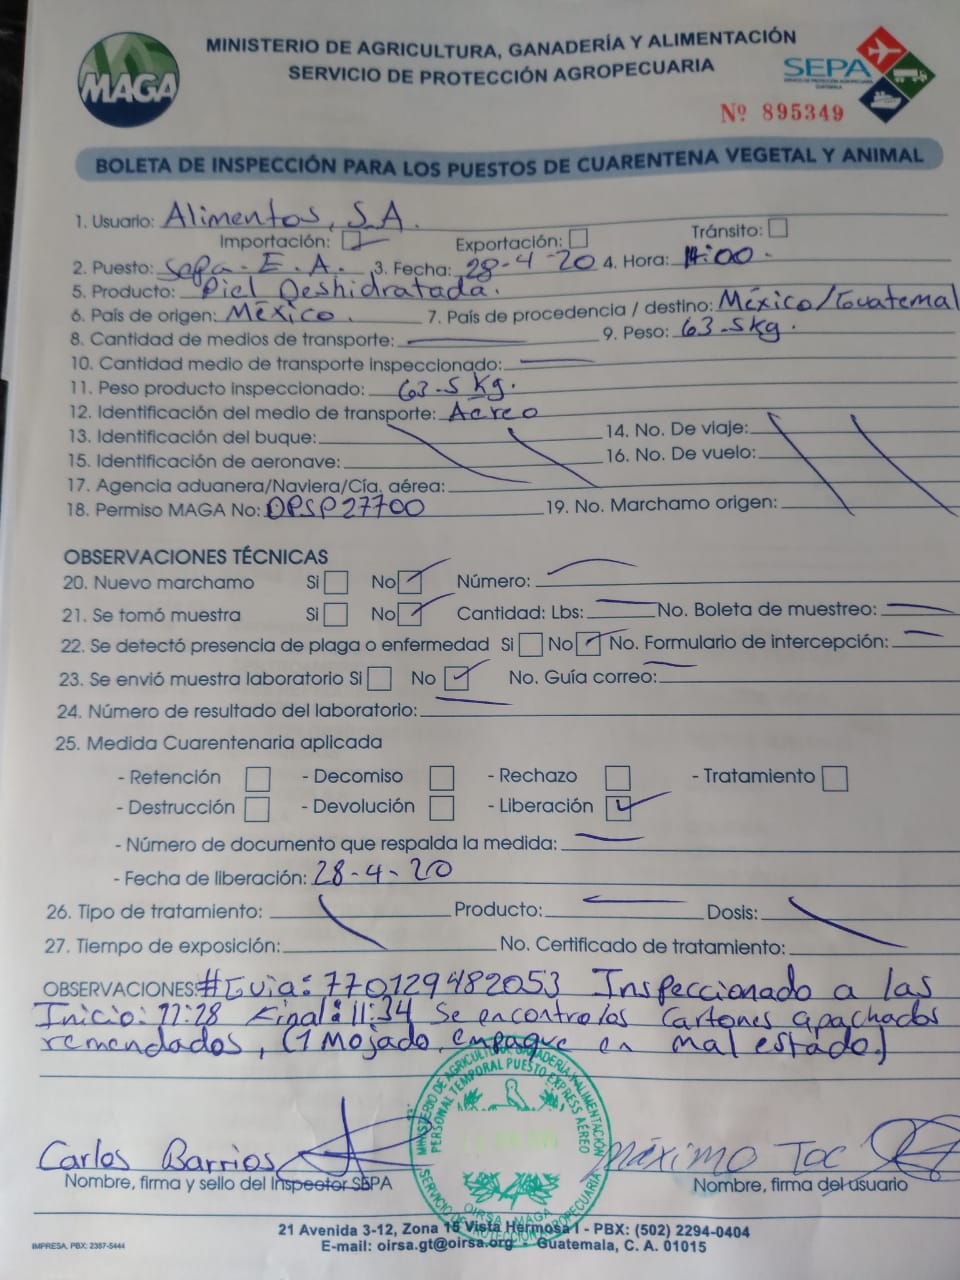 MAGA
MINISTERIO DE AGRICULTURA, GANADERÍA Y ALIMENTACIÓN
SERVICIO DE PROTECCIÓN AGROPECUARIA
SEPA
Nº 895349
BOLETA DE INSPECCIÓN PARA LOS PUESTOS DE CUARENTENA VEGETAL Y ANIMAL
1. Usuario: Alimentos, S.A.
Importación: Exportación: Tránsito:
2. Puesto: Sepa-E.A. 3. Fecha: 28-4-20 4. Hora: 11:00.
5. Producto: Piel Deshidratada.
6. País de origen: México. 7. País de procedencia / destino: México/Guatemal
8. Cantidad de medios de transporte: 9. Peso: 63.5kg.
10. Cantidad medio de transporte inspeccionado:
11. Peso producto inspeccionado: 63.5 Kg.
12. Identificación del medio de transporte: Aereo
13. Identificación del buque: 14. No. De viaje:
15. Identificación de aeronave: 16. No. De vuelo:
17. Agencia aduanera/Naviera/Cía. aérea:
18. Permiso MAGA No: DPSP27700 19. No. Marchamo origen:
OBSERVACIONES TÉCNICAS
20. Nuevo marchamo Si No Número:
21. Se tomó muestra Si No Cantidad: Lbs: No. Boleta de muestreo:
22. Se detectó presencia de plaga o enfermedad Si No No. Formulario de intercepción:
23. Se envió muestra laboratorio Si No No. Guía correo:
24. Número de resultado del laboratorio:
25. Medida Cuarentenaria aplicada
- Retención - Decomiso - Rechazo - Tratamiento
- Destrucción - Devolución - Liberación
- Número de documento que respalda la medida:
- Fecha de liberación: 28-4-20
26. Tipo de tratamiento: Producto: Dosis:
27. Tiempo de exposición: No. Certificado de tratamiento:
OBSERVACIONES: #Guia: 770129482053 Inspeccionado a las
Inicio: 11:28 Final: 11:34 Se encontro los Cartones apachados
remendados, (1 Mojado, empaque en mal estado.)
MINISTERIO DE AGRICULTURA, GANADERÍA Y ALIMENTACIÓN
PERSONAL TEMPORAL PUESTO EXPRESS AÉREO
OIRSA - MAGA
SERVICIO DE PROTECCIÓN AGROPECUARIA
Carlos Barrios Máximo Toc
Nombre, firma y sello del Inspector SEPA Nombre, firma del usuario
21 Avenida 3-12, Zona 15 Vista Hermosa I - PBX: (502) 2294-0404
IMPRESA. PBX: 2387-5444 E-mail: oirsa.gt@oirsa.org - Guatemala, C. A. 01015